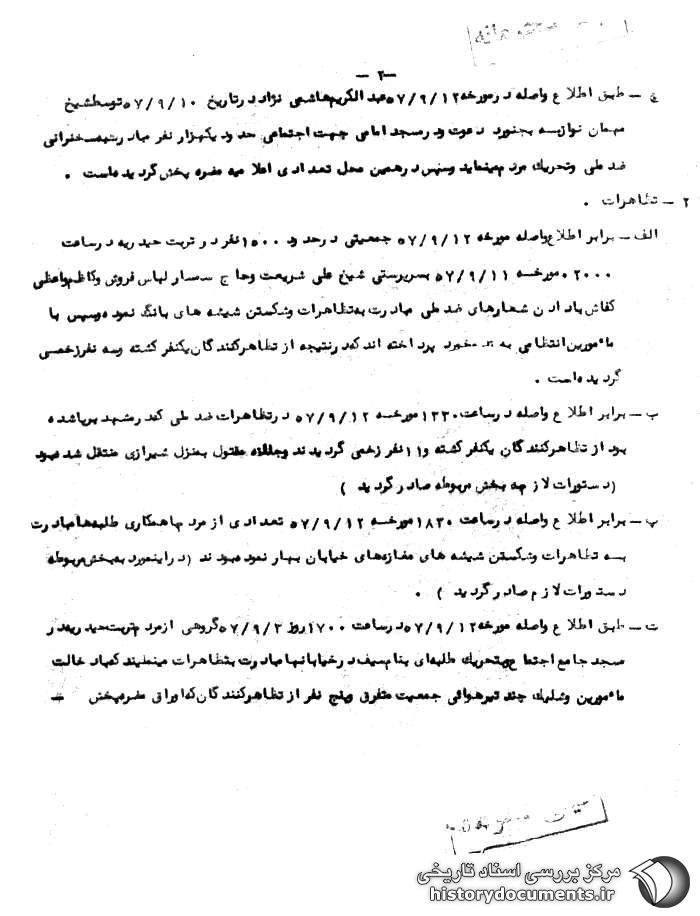 محرمانه
— ۲ —
ج — طبق اطلاع واصله در مورخه ۵۷/۹/۱۲ عبدالکریم هاشمی نژاد در تاریخ ۵۷/۹/۱۰ توسط شیخ
مهمان نواز به بجنورد دعوت و در مسجد امامی جهت اجتماعی حدود یکهزار نفر مبادرت به سخنرانی
ضد ملی و تحریک مردم مینماید و سپس در همین محل تعدادی اعلامیه مضره پخش گردیده است .
۲ — تظاهرات .
الف — برابر اطلاع واصله مورخه ۵۷/۹/۱۲ جمعیتی در حدود ۱۵۰۰ نفر در تربت حیدریه در ساعت
۲۰۰۰ مورخه ۵۷/۹/۱۱ بسرپرستی شیخ علی شریعت و حاج سمسار لباس فروش و کاظم واعظی
کفاش با دادن شعارهای ضد ملی مبادرت به تظاهرات و شکستن شیشه های بانک نموده و سپس با
مأمورین انتظامی به برخورد پرداخته اند که در نتیجه از تظاهرکنندگان یکنفر کشته و سه نفر زخمی
گردیده است .
ب — برابر اطلاع واصله در ساعت ۱۲۳۰ مورخه ۵۷/۹/۱۲ در تظاهرات ضد ملی که در مشهد برپا شده
بود از تظاهرکنندگان یکنفر کشته و ۱۱ نفر زخمی گردیدند و جنازه مقتول بمنزل شیرازی منتقل شده بود
(دستورات لازم به بخش مربوطه صادر گردید )
پ — برابر اطلاع واصله در ساعت ۱۸۳۰ مورخه ۵۷/۹/۱۲ تعدادی از مردم با همکاری طلبه ها مبادرت
به تظاهرات و شکستن شیشه های مغازه های خیابان بهار نموده بودند (در اینمورد به بخش مربوطه
دستورات لازم صادر گردید ) .
ت — طبق اطلاع واصله مورخه ۵۷/۹/۱۲ در ساعت ۱۷۰۰ روز ۵۷/۹/۲ گروهی از مردم تربت حیدریه در
مسجد جامع اجتماع و بتحریک طلبه ای بنام سیف در خیابانها مبادرت بتظاهرات مینمایند که با دخالت
مأمورین و شلیک چند تیر هوائی جمعیت متفرق و پنج نفر از تظاهرکنندگان که اوراق مضره پخش —
مرکز بررسی اسناد تاریخی
historydocuments.ir